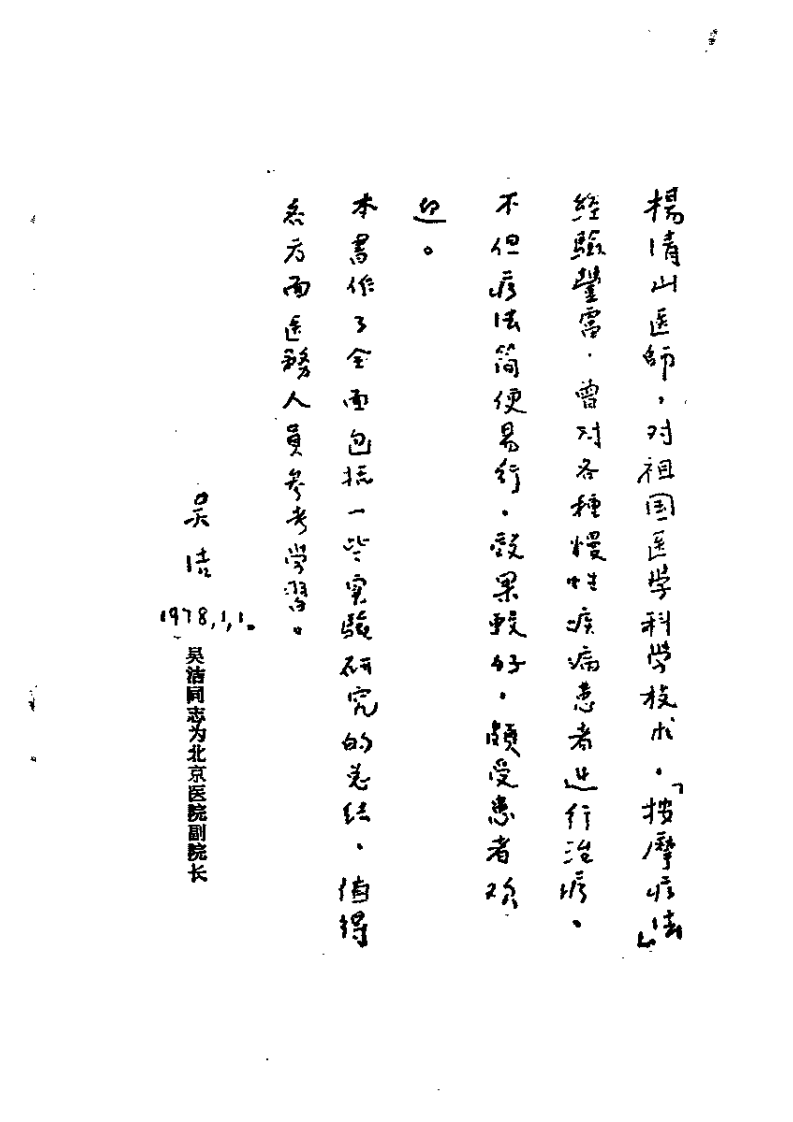 楊清山医師，对祖国医学科学技术，「按摩疗法」
经驗豐富，曾对各種慢性疾病患者进行治疗，
不但疗法简便易行，効果較好，頗受患者欢
迎。
本書作了全面包括一些实驗研究的总结，值得
各方面医务人員参考学習。
吴洁
1978,1,1.
吴洁同志为北京医院副院长